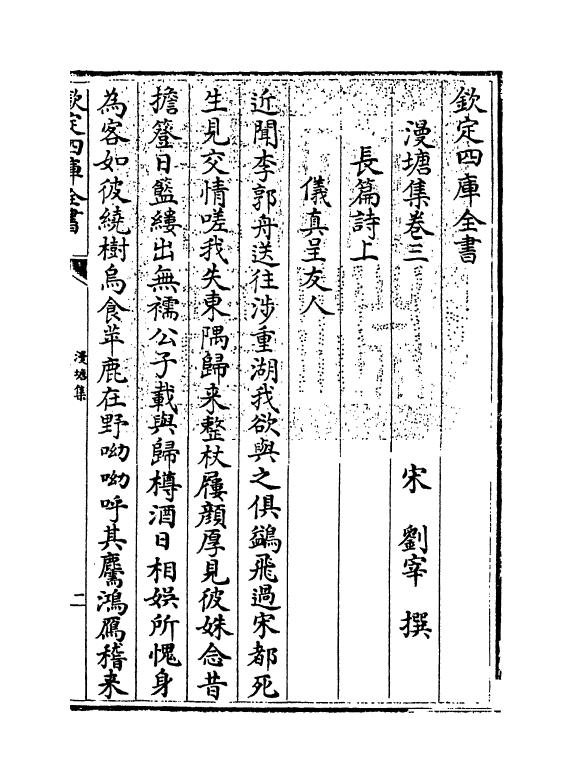 欽定四庫全書
漫塘集卷三
宋 劉宰 撰
長篇詩上
儀真呈友人
近聞李郭舟送往涉重湖我欲與之俱鷁飛過宋都死
生見交情嗟我失東隅歸来整杖屨顔厚見彼姝念昔
擔簦日藍縷出無襦公子載與歸樽酒日相娯所愧身
為客如彼繞樹烏食苹鹿在野呦呦呼其麌鴻鴈稽来
欽定四庫全書
漫塘集
二